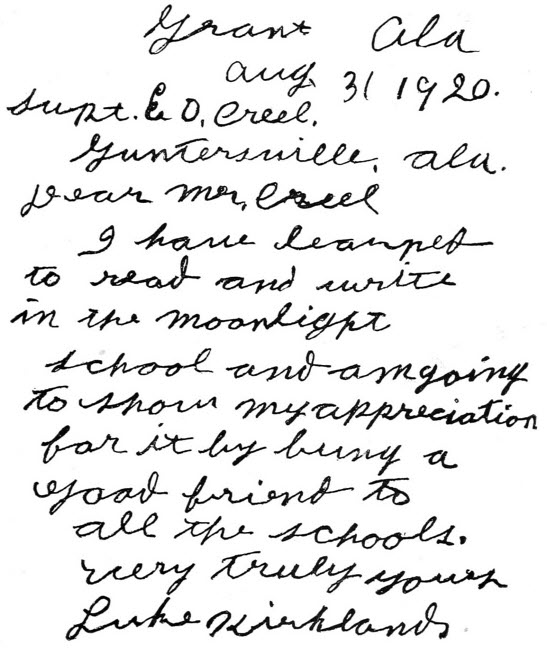 Grant Ala
Aug 31 1920.
Supt. E. D. Creel.
Guntersville, Ala.
Dear Mr. Creel
I have learned
to read and write
in the moonlight
school and am going
to show my appreciation
for it by being a
good friend to
all the schools.
very truly yours
Luke Kirkland